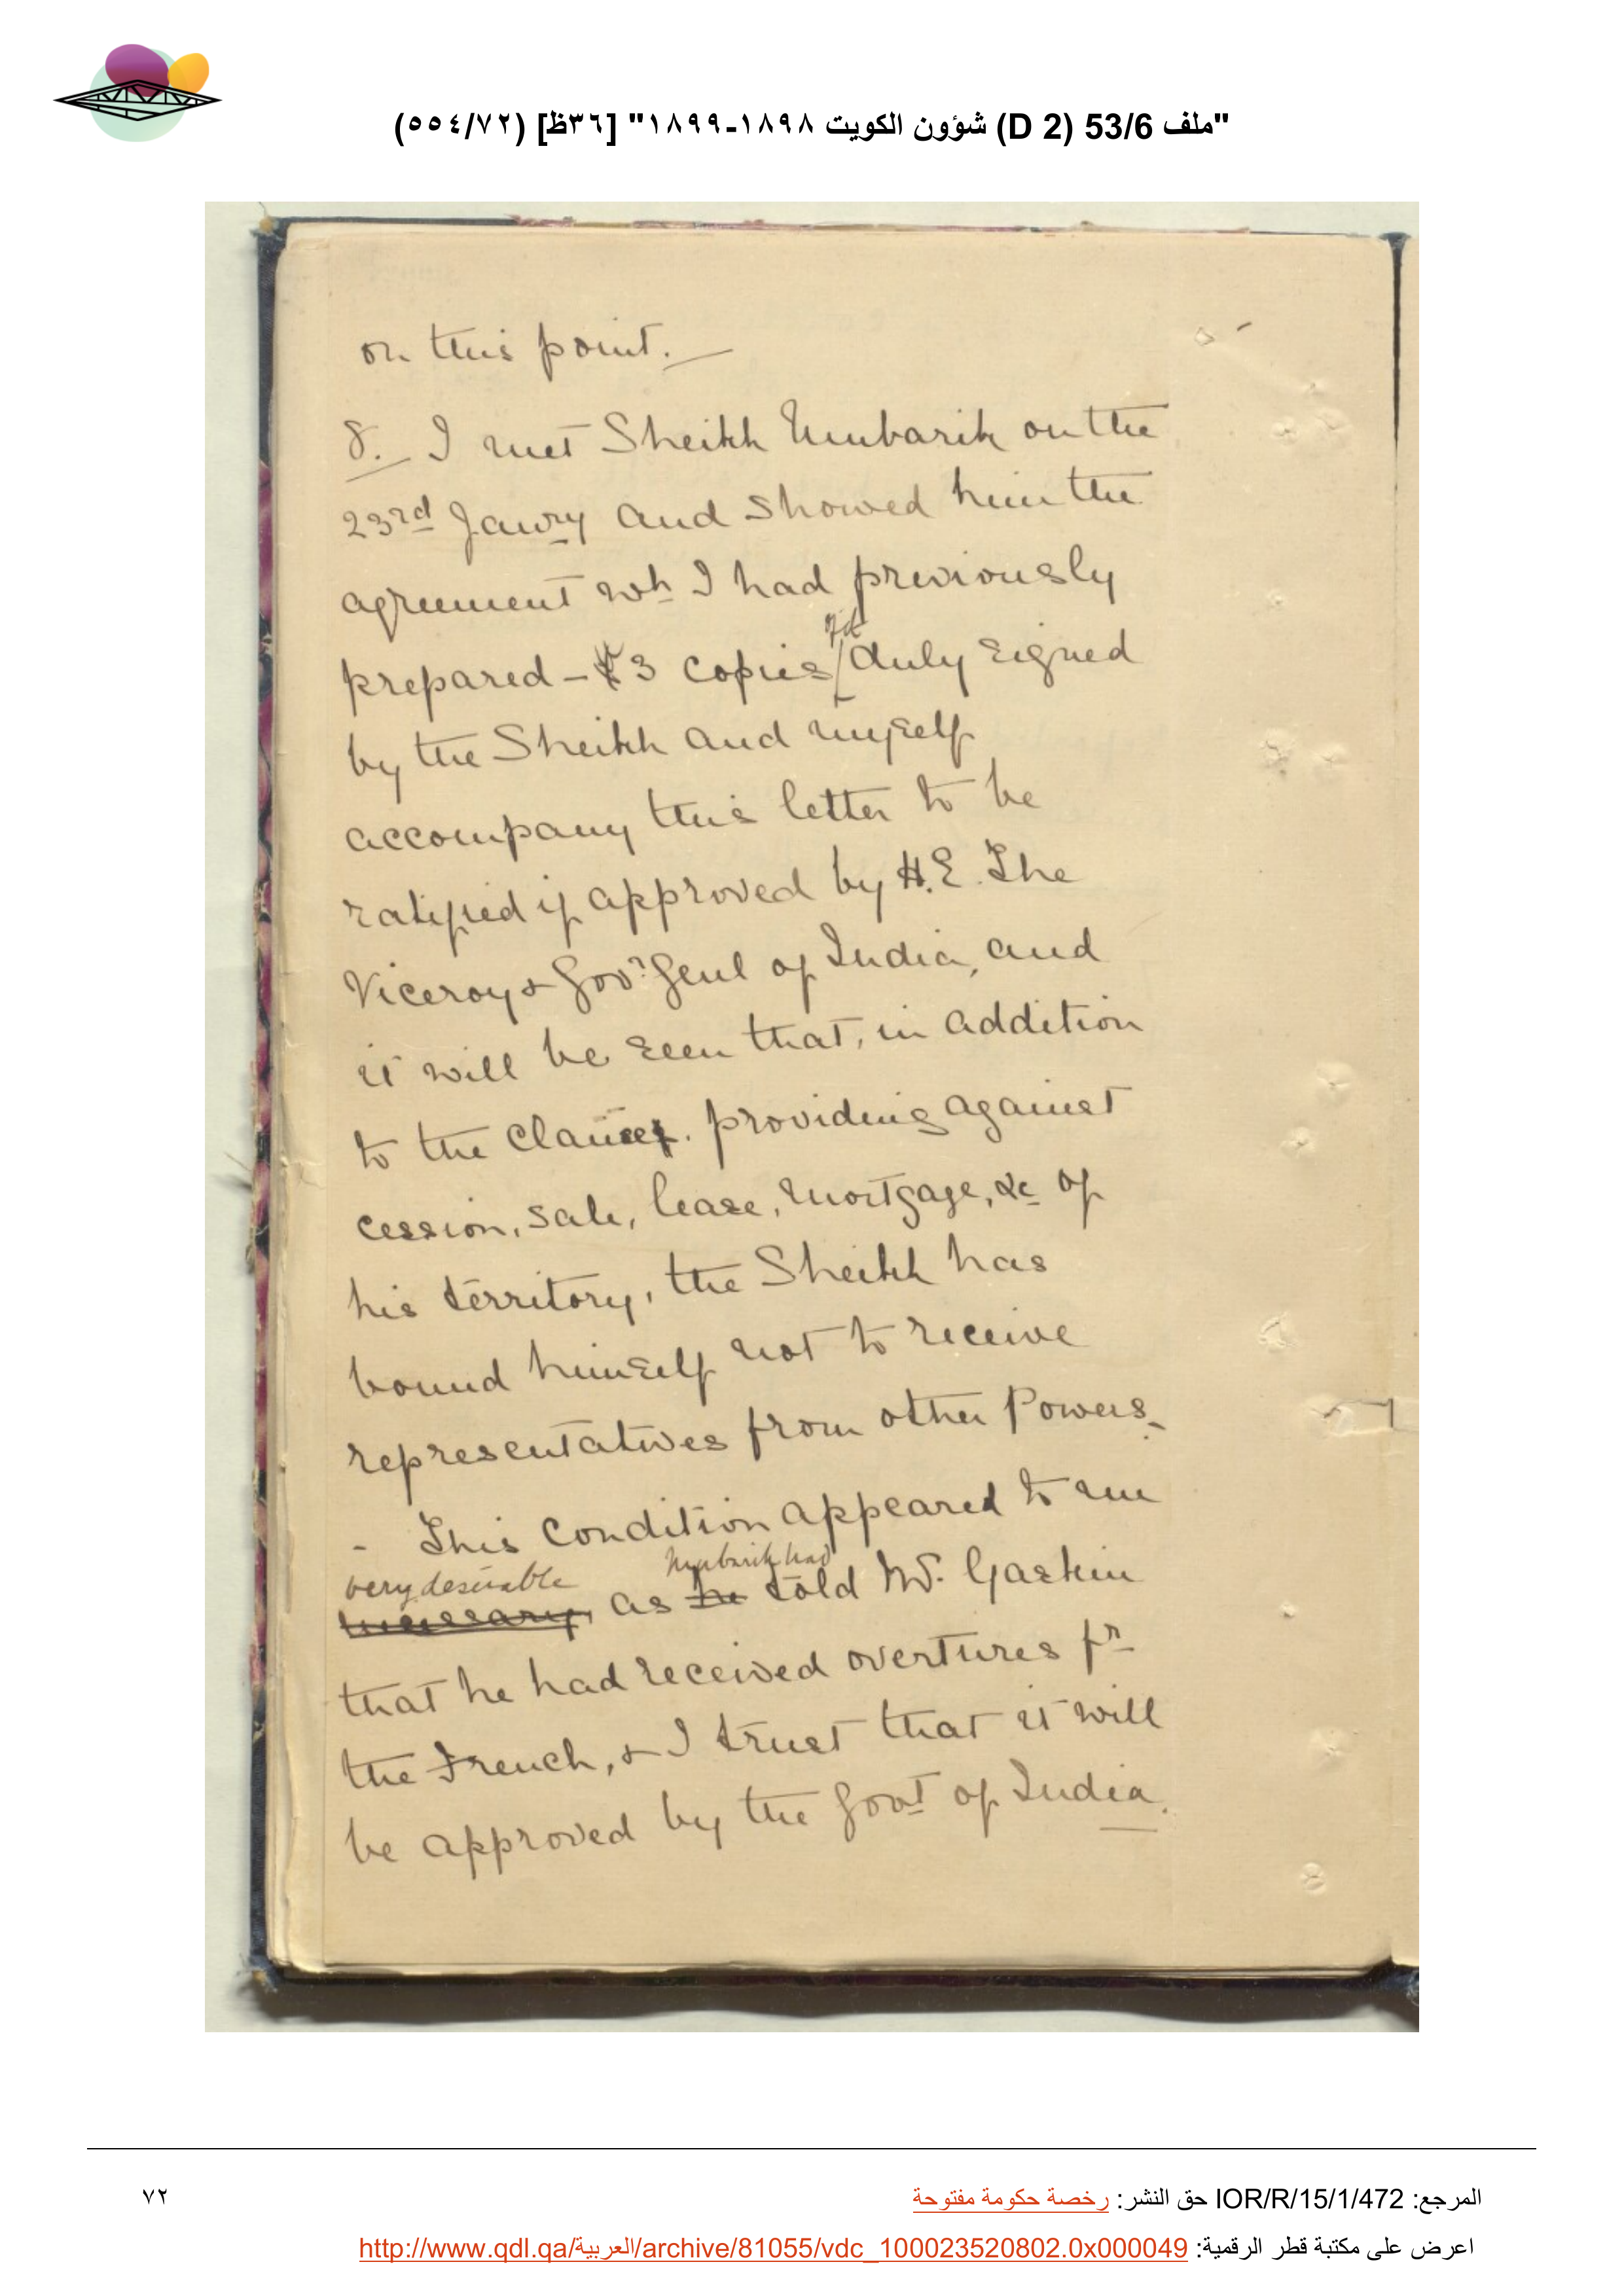 "ملف 53/6 (D 2) شؤون الكويت ١٨٩٨-١٨٩٩" [٣٦ظ] (٥٥٤/٧٢)
on this point. —
8. I met Sheikh Mubarik on the
23rd Janry and showed him the
agreement wh I had previously
prepared – 3 copies of it duly signed
by the Sheikh and myself
accompany this letter to be
ratified if approved by H.E. The
Viceroy & Govr Genl of India, and
it will be seen that, in addition
to the clause. providing against
cession, sale, lease, mortgage, &c of
his territory, the Sheikh has
bound himself not to receive
representatives from other Powers.
- This condition appeared to me
very desirable Mubarik had
necessary, as he told Mr. Gaskin
that he had received overtures fr
the French, & I trust that it will
be approved by the Govt of India.
المرجع: IOR/R/15/1/472 حق النشر: رخصة حكومة مفتوحة
٧٢
اعرض على مكتبة قطر الرقمية: http://www.qdl.qa/العربية/archive/81055/vdc_100023520802.0x000049